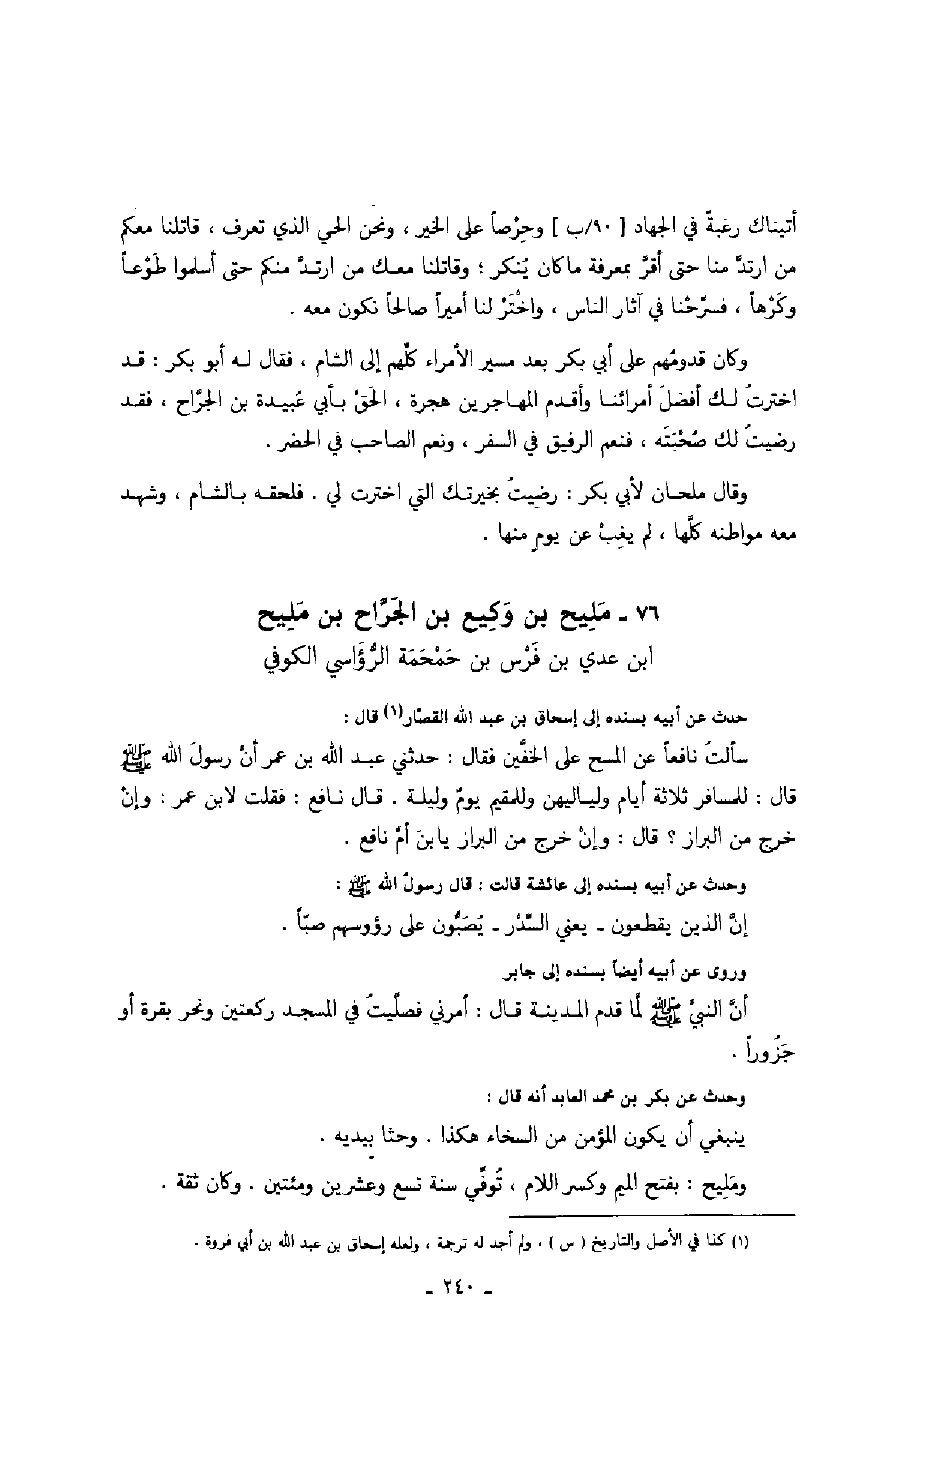 أتيناك رغبةً في الجهاد [ ٩٠/ب ] وحِرْصاً على الخير ، ونحن الحي الذي تعرف ، قاتلنا معكم
من ارتدَّ منا حتى أقرَّ بمعرفة ماكان يُنكر ؛ وقاتلنا معك من ارتدَّ منكم حتى أسلموا طَوْعاً
وكَرْهاً ، فسرِّحْنا في آثار الناس ، واخْتَرْ لنا أميراً صالحاً نكون معه .
وكان قدومُهم على أبي بكر بعد مسير الأمراء كلِّهم إلى الشام ، فقال له أبو بكر : قد
اخترتُ لك أفضلَ أمرائنا وأقدم المهاجرين هجرة ، الحَقْ بأبي عُبيدة بن الجرَّاح ، فقد
رضيتُ لك صُحْبَتَه ، فنعم الرفيق في السفر ، ونعم الصاحب في الحضر .
وقال ملحان لأبي بكر : رضيتُ بخيرتك التي اخترت لي . فلحقه بالشام ، وشهد
معه مواطنه كلَّها ، لم يغِبْ عن يومٍ منها .
٧٦ ـ مَلِيح بن وَكِيع بن الجَرَّاح بن مَلِيح
ابن عدي بن فَرْس بن حَمْحَمَة الرُّؤَاسي الكوفي
حدث عن أبيه بسنده إلى إسحاق بن عبد الله القصّار(١) قال :
سألتُ نافعاً عن المسح على الخفَّين فقال : حدثني عبد الله بن عمر أنْ رسولَ الله ﷺ
قال : للمسافر ثلاثة أيام ولياليهن وللمقيم يومٌ وليلة . قال نافع : فقلت لابن عمر : وإنْ
خرج من البراز ؟ قال : وإنْ خرج من البراز يابنَ أمّ نافع .
وحدث عن أبيه بسنده إلى عائشة قالت : قال رسولُ الله ﷺ :
إنَّ الذين يقطعون ـ يعني السِّدْر ـ يُصَبُّون على رؤوسهم صبّاً .
وروى عن أبيه أيضاً بسنده إلى جابر
أنَّ النبيَّ ﷺ لمَّا قدم المدينة قال : أمرني فصلَّيتُ في المسجد ركعتين ونحر بقرة أو
جَزُوراً .
وحدث عن بكر بن محمد العابد أنه قال :
ينبغي أن يكون المؤمن من السخاء هكذا . وحثا بيديه .
ومَلِيح : بفتح الميم وكسر اللام ، تُوفِّي سنة تسع وعشرين ومئتين . وكان ثقة .
(١) كذا في الأصل والتاريخ ( س ) ، ولم أجد له ترجمة ، ولعله إسحاق بن عبد الله بن أبي فروة .
ـ ٢٤٠ ـ